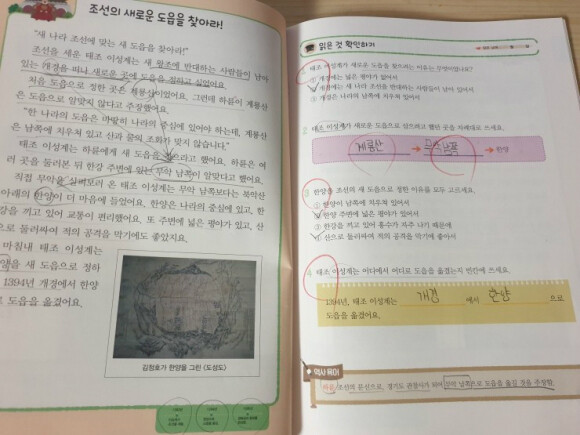 조선의 새로운 도읍을 찾아라!
"새 나라 조선에 맞는 새 도읍을 찾아라!"
조선을 세운 태조 이성계는 새 왕조에 반대하는 사람들이 남아
있는 개경을 떠나 새로운 곳에 도읍을 정하고 싶었어요.
처음 도읍으로 정한 곳은 계룡산이었어요. 그런데 하륜이 계룡산
은 도읍으로 알맞지 않다고 주장했어요.
"한 나라의 도읍은 마땅히 나라의 중심에 있어야 하는데, 계룡산
은 남쪽에 치우쳐 있고 산과 물의 조화가 맞지 않습니다."
태조 이성계는 하륜에게 새 도읍을 찾으라고 했어요. 하륜은 여
러 곳을 둘러본 뒤 한강 주변에 있는 무악 남쪽이 알맞다고 했어요.
직접 무악을 살펴보러 온 태조 이성계는 무악 남쪽보다는 북악산
아래의 한양이 더 마음에 들었어요. 한양은 나라의 중심에 있고, 한
강을 끼고 있어 교통이 편리했어요. 또 주변에 넓은 평야가 있고, 산
으로 둘러싸여 적의 공격을 막기에도 좋았지요.
마침내 태조 이성계는
한양을 새 도읍으로 정하
1394년 개경에서 한양
로 도읍을 옮겼어요.
김정호가 한양을 그린 〈도성도〉
읽은 것 확인하기
1 태조 이성계가 새로운 도읍을 찾으려는 이유는 무엇이었나요?
① 개경에는 넓은 평야가 없어서
② 개경에는 새 나라 조선을 반대하는 사람들이 남아 있어서
③ 개경은 나라의 남쪽에 치우쳐 있어서
2 태조 이성계가 새로운 도읍으로 삼으려고 했던 곳을 차례대로 쓰세요.
계룡산 → 무악남쪽 → 한양
3 한양을 조선의 새 도읍으로 정한 이유를 모두 고르세요.
① 한양이 남쪽에 치우쳐 있어서
② 한양 주변에 넓은 평야가 있어서
③ 한강을 끼고 있어 홍수가 자주 나기 때문에
④ 산으로 둘러싸여 적의 공격을 막기에 좋아서
4 태조 이성계는 어디에서 어디로 도읍을 옮겼는지 빈칸에 쓰세요.
1394년, 태조 이성계는 개경 에서 한양 으로
도읍을 옮겼어요.
역사 용어
하륜 조선의 문신으로, 경기도 관찰사가 되어 무악 남쪽으로 도읍을 옮길 것을 주장함.